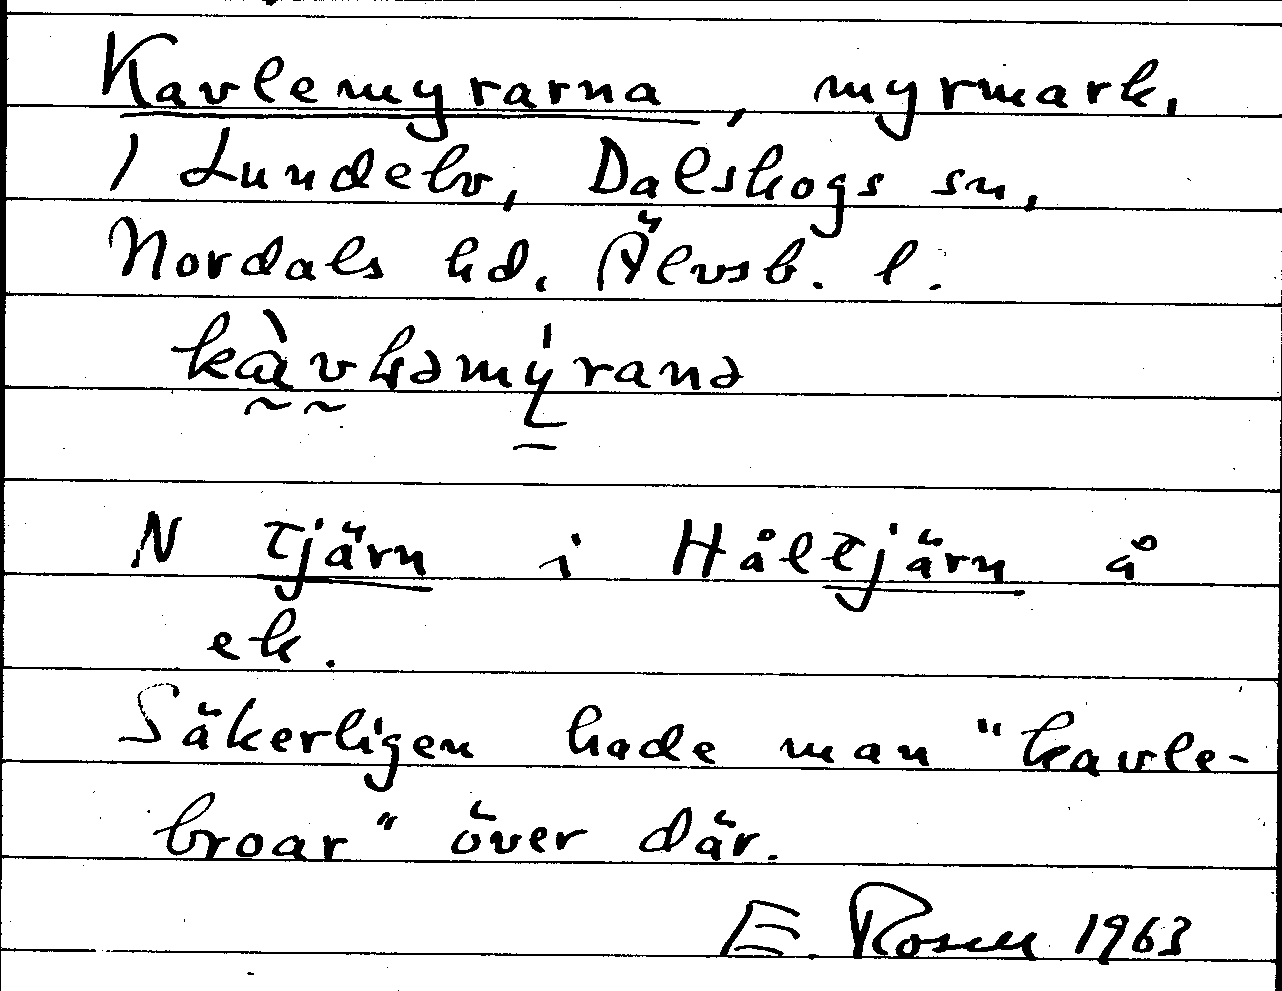 Kavlemyrarna, myrmark,
1 Lundebv, Dalskogs sn,
Nordals hd, Älvsb. l.
N Tjärn i Håltjärn å
ek.
Säkerligen hade man "kavle-
broar" över där.
E. Rosell 1963